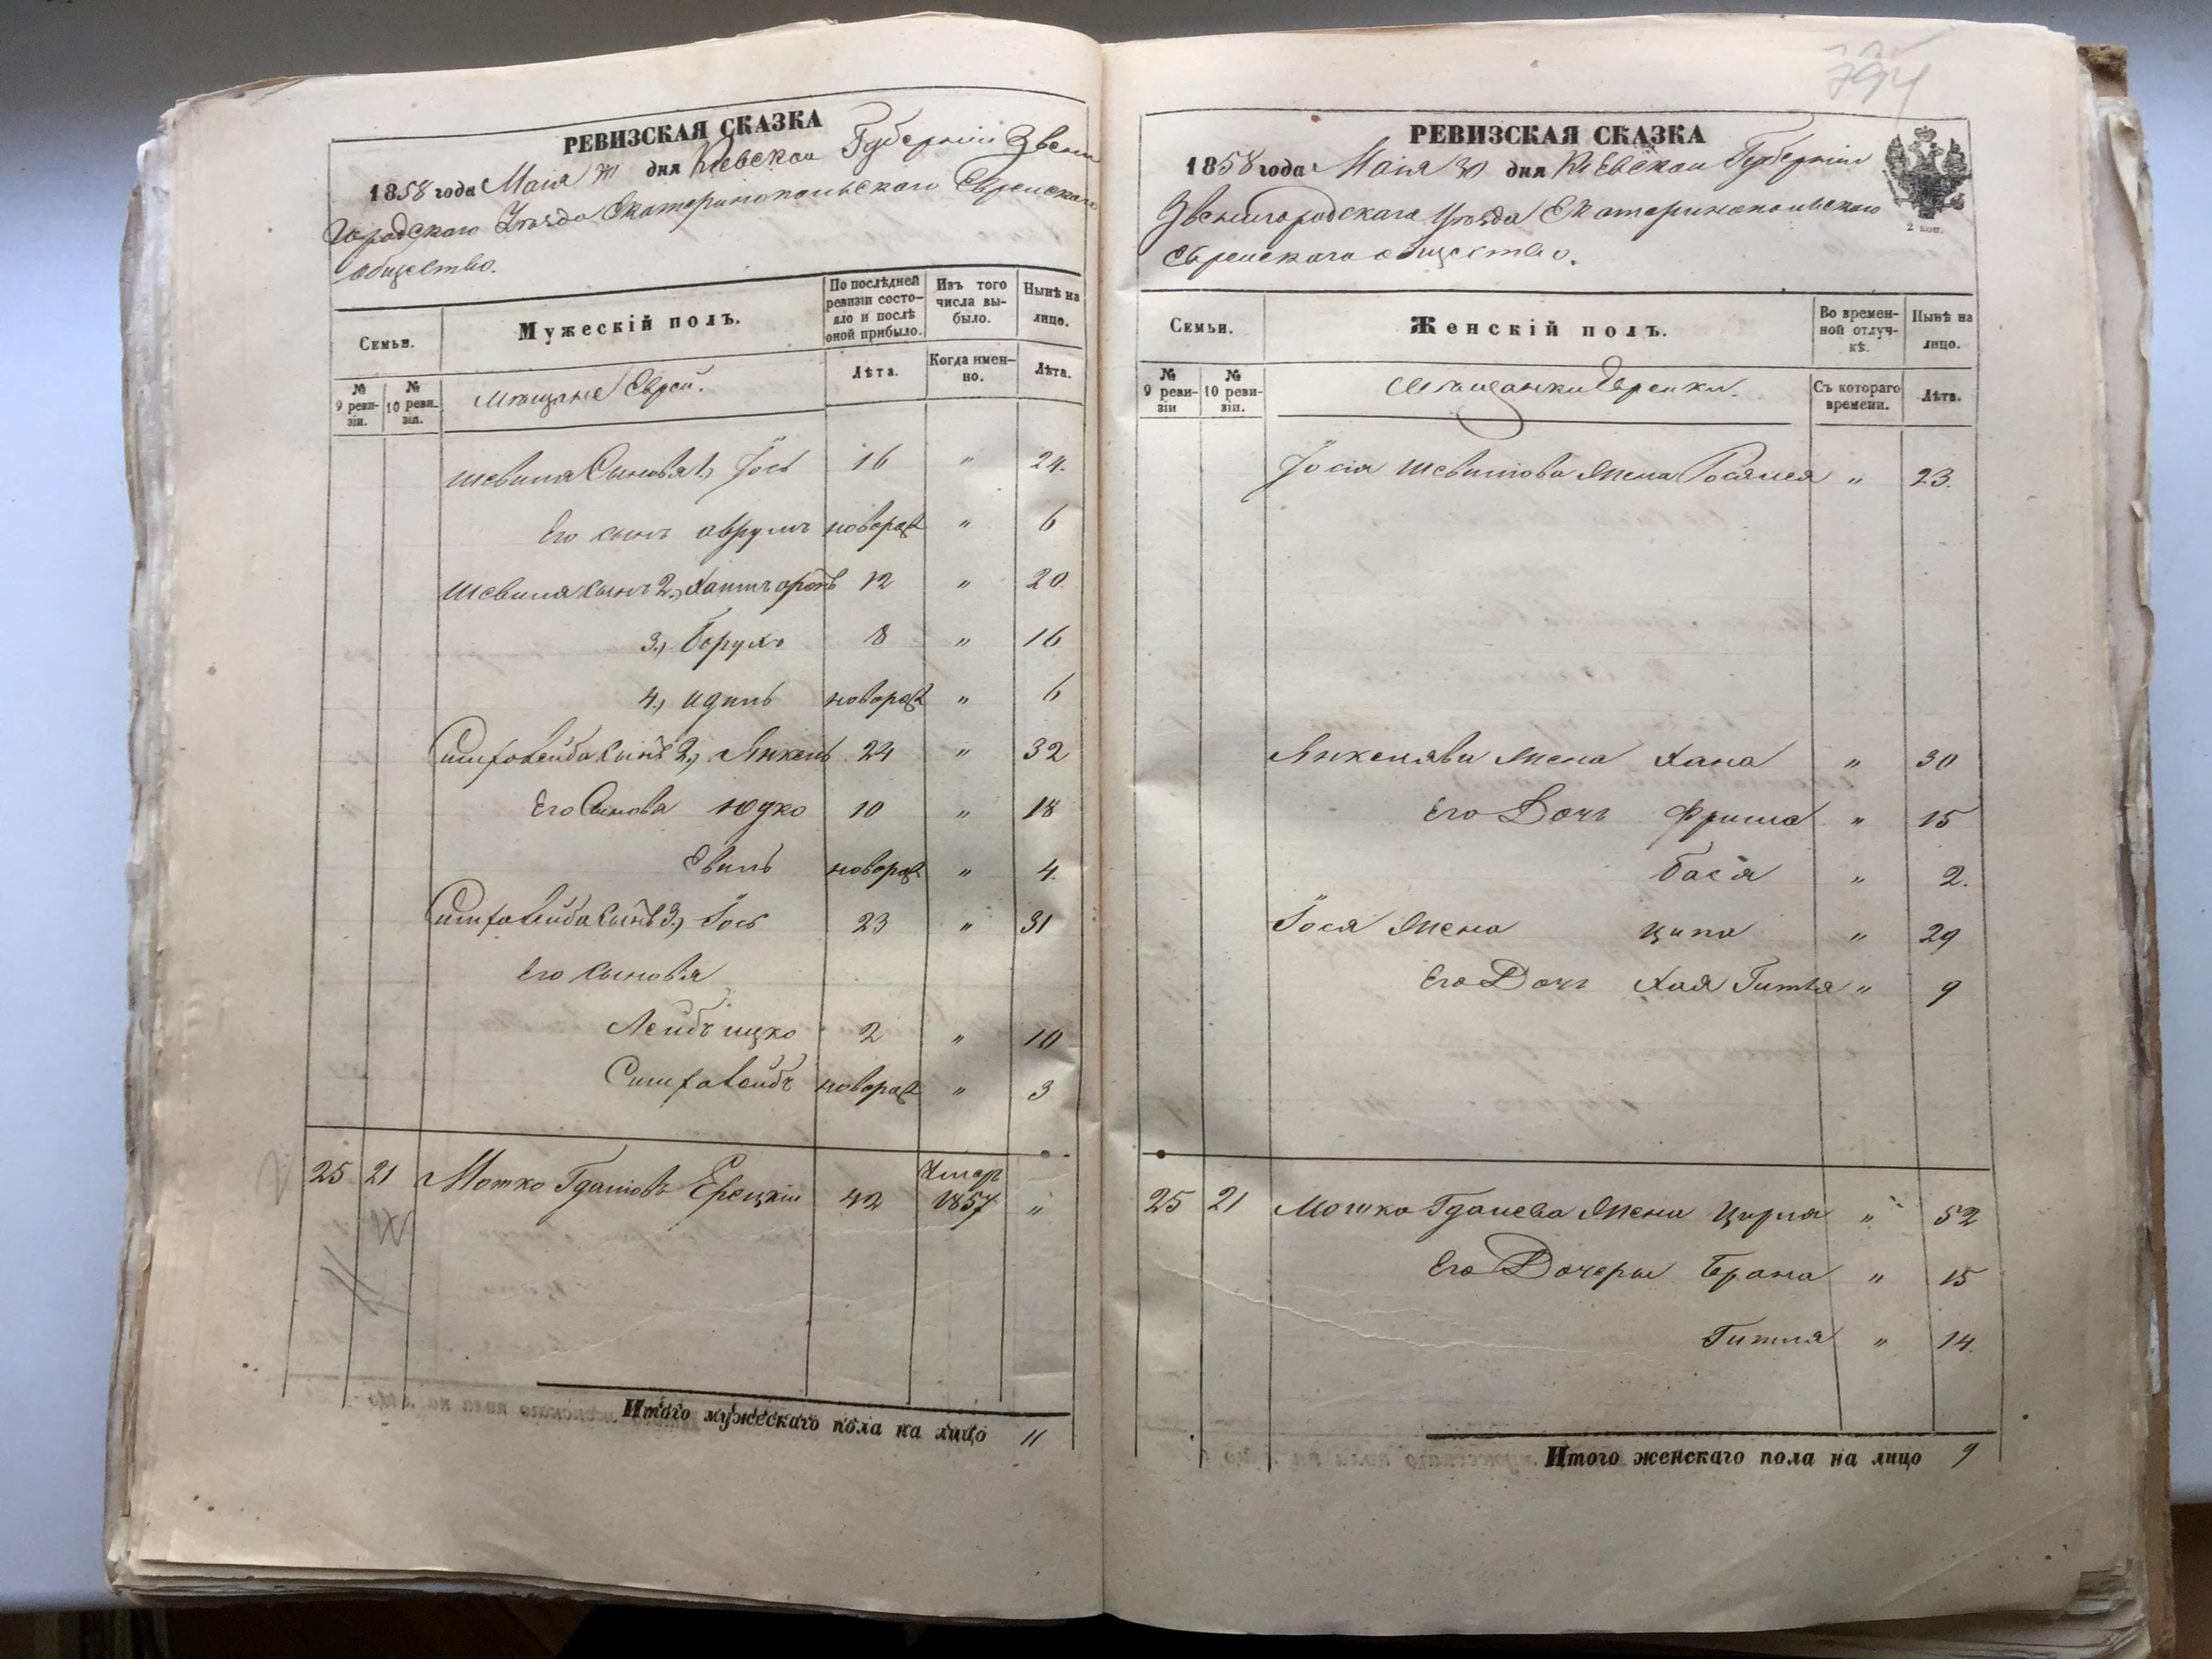 РЕВИЗСКАЯ СКАЗКА
1858 года Маія 30 дня Кіевской Губерніи Звени
городскаго Уѣзда Екатеринопольскаго Еврейскаго
общества.
Семьи.
Мужескій полъ.
По послѣдней ревизіи состояло и послѣ оной прибыло.
Изъ того числа выбыло.
Нынѣ на лицо.
№ 9 ревизіи.
№ 10 ревизіи.
Мѣщане Евреи.
Лѣта.
Когда именно.
Лѣта.
Шевиля Сыновья 1, Іось 16 " 24.
Его сынъ Аврумъ новорож " 6
Шевиля сынъ 2, 12 " 20.
3, Борухъ 8 " 16
4, Идиль новорож " 6
сынъ 2, Янкель 24 " 32
Его Сыновья Юдко 10 " 18
Евиль новорож " 4.
сынъ 3, Іось 23 " 31
Его сыновья
Лейбъ Ицко 2 " 10
новорож " 3
25 21 Мошко Ерецкій 42 Умер 1857 "
Итого мужескаго пола на лицо 11
794
РЕВИЗСКАЯ СКАЗКА
1858 года Маія 30 дня Кіевской Губерніи
Звенигородскаго Уѣзда Екатеринопольскаго
Еврейскаго общества.
2 коп.
Семьи.
Женскій полъ.
Во временной отлучкѣ.
Нынѣ на лицо.
№ 9 ревизіи
№ 10 ревизіи.
Мѣщанки Еврейки.
Съ котораго времени.
Лѣта.
Іося Шевилова жена " 23.
Янкелява жена Хана " 30
Его Дочь Фрима " 15
Бася " 2.
Іося жена Ципа " 29
Его Дочь Хая Гитля " 9
25 21 Мошка жена Цирля " 52
Его Дочеры Брана " 15
Гитля " 14.
Итого женскаго пола на лицо 9